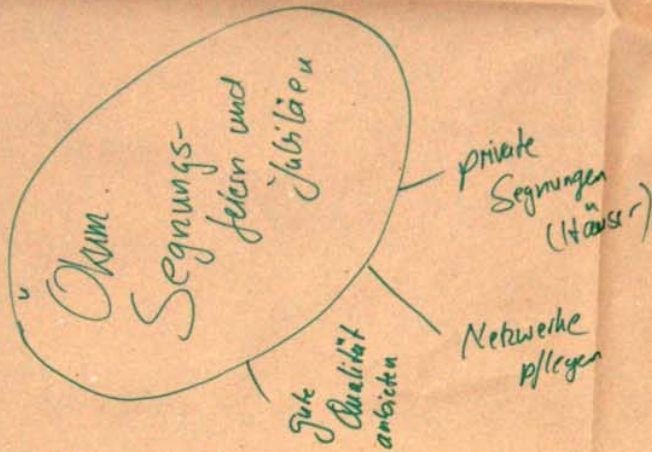 Ökum.
Segnungs-
feiern und
Jubiläen
private
Segnungen
(Häuser)
Netzwerke
pflegen
gute
Qualität
anbieten